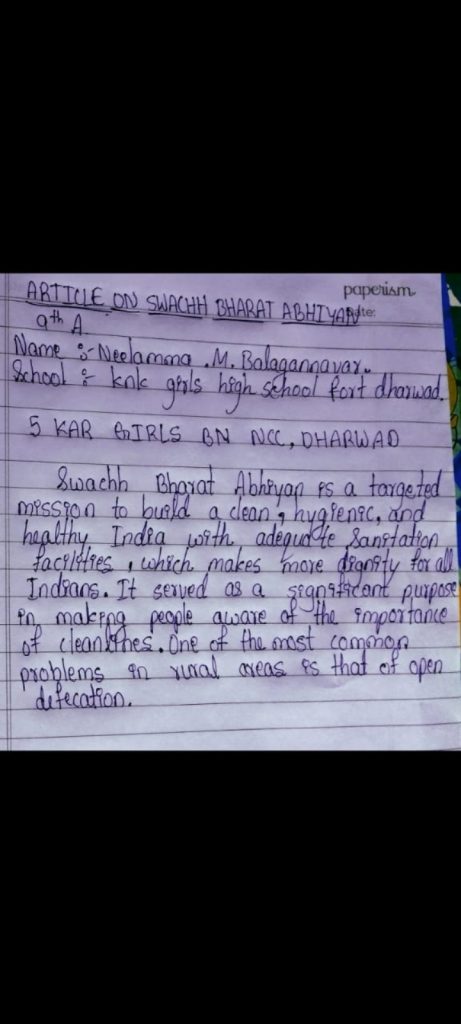 paperism
ARTICLE ON SWACHH BHARAT ABHIYAN
Date:
9th A
Name :- Neelamma .M. Balagannavar.
School :- knk girls high school fort dharwad.
5 KAR GIRLS BN NCC, DHARWAD
Swachh Bharat Abhiyan is a targeted
mission to build a clean, hygienic, and
healthy India with adequate Sanitation
facilities, which makes more dignity for all
Indians. It served as a significant purpose
in making people aware of the importance
of cleanlines. One of the most common
problems in rural areas is that of open
defecation.